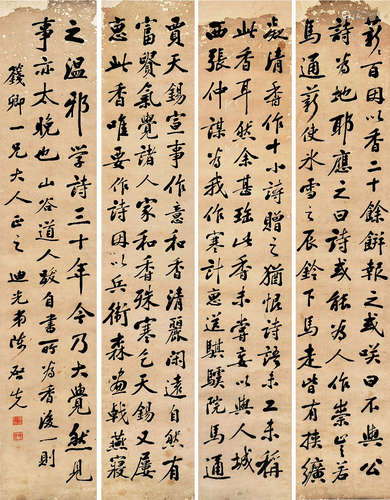 薪百因以香二十餘餅報之或咲曰不與公
詩為地耶應之曰詩或能為人作祟豈若
馬通薪使冰雪之辰鈴下馬走皆有挾纊
凝清香作十小詩贈之猶恨詩語未工未稱
此香耳然余甚珍此香未嘗妄以與人城
西張仲謀為我作寒計惠送騏驥院馬通
賈天錫宣事作意和香清麗閑遠自然有
富貴氣覺諸人家和香殊寒乞天錫又屢
惠此香唯要作詩因以兵衛森畫戟燕寢
之溫邪學詩三十年今乃大覺然見
事亦太晚也 山谷道人跋自書所為香後一則
籛卿一兄大人正之 迪光弟陳